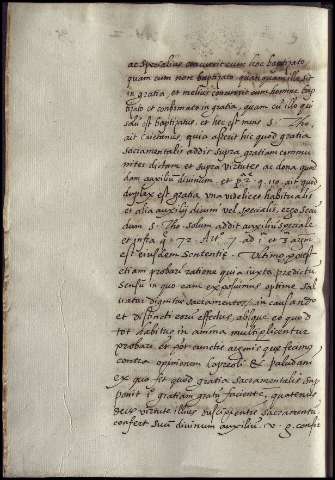 ac specialius concurrit cum hoc baptizato,
quam cum non baptizato quanquam ille sit
in gratia, et melius concurrit cum homine bap
tizato et confirmato in gratia, quam cū illo qui
solū est baptizatus, et hec est mens S. Tho.
ait Caietanus, quia asserit hic quod gratia
sacramentalis addit supra gratiam commu
niter dictam et supra virtutes ac dona quod
dam auxiliū divinum, et q. 110 ait quod
duplex est gratia una videlicet habitualis
et alia auxiliū divinū vel specialis, ergo secū
dum S. Tho. solum addit auxiliū speciale
et infra q. 72. Art. 7. ad 1 et 3
est eiusdem sententie. Ultimo potest
etiam probari ratione quia iuxta predictū
sensū in quo eam exposuimus optime sal
vatur dignitas sacramentorū in causando
et distincti eorū effectus, absque eo quod
tot habitus in anima multiplicentur
probatur et per cuncta que fecimus
contra opinionem Capreoli & Paludani
ex quo fit quod gratia sacramentalis sup
ponit gratiam gratū faciente, quatenus
deus virtute illius suscipiente sacramentū
confert suū divinum auxiliū. v. g. confir